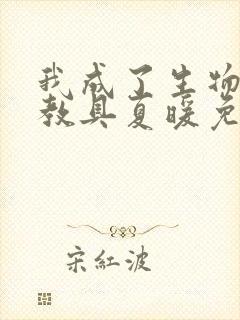 我成了生物
教具夏暖免
宋紅波